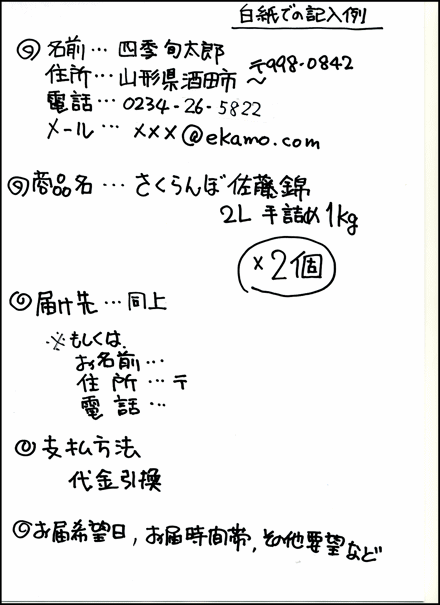 白紙での記入例
◎名前…四季旬太郎
住所…山形県酒田市～ 〒998-0842
電話…0234-26-5822
メール…×××@ekamo.com
◎商品名…さくらんぼ佐藤錦
2L 手詰め1kg
×2個
◎届け先…同上
※もしくは
お名前…
住所…〒
電話…
◎支払方法
代金引換
◎お届希望日,お届時間帯,その他要望など